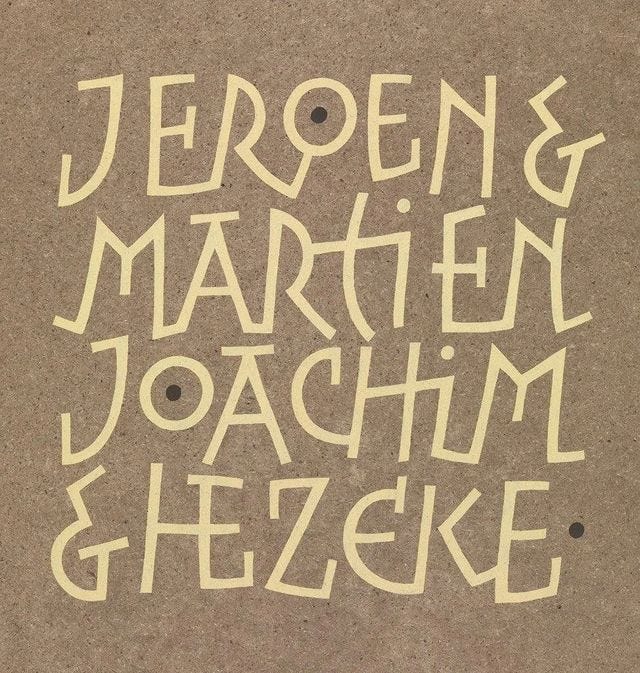 JEROEN &
MARTiEN
JOACHiM
& HEZEKE